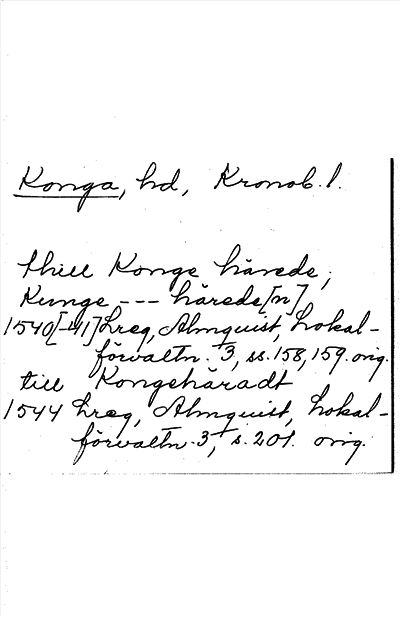 Konga, hd, Kronob. l.
thill Konge härede,
Kunge --- härede[n]
1540[-41] Lreg, Almquist, Lokal-
förvaltn. 3, ss. 158, 159. orig.
till Kongehäradt
1544 Lreg, Almquist, Lokal-
förvaltn. 3, s. 201. orig.